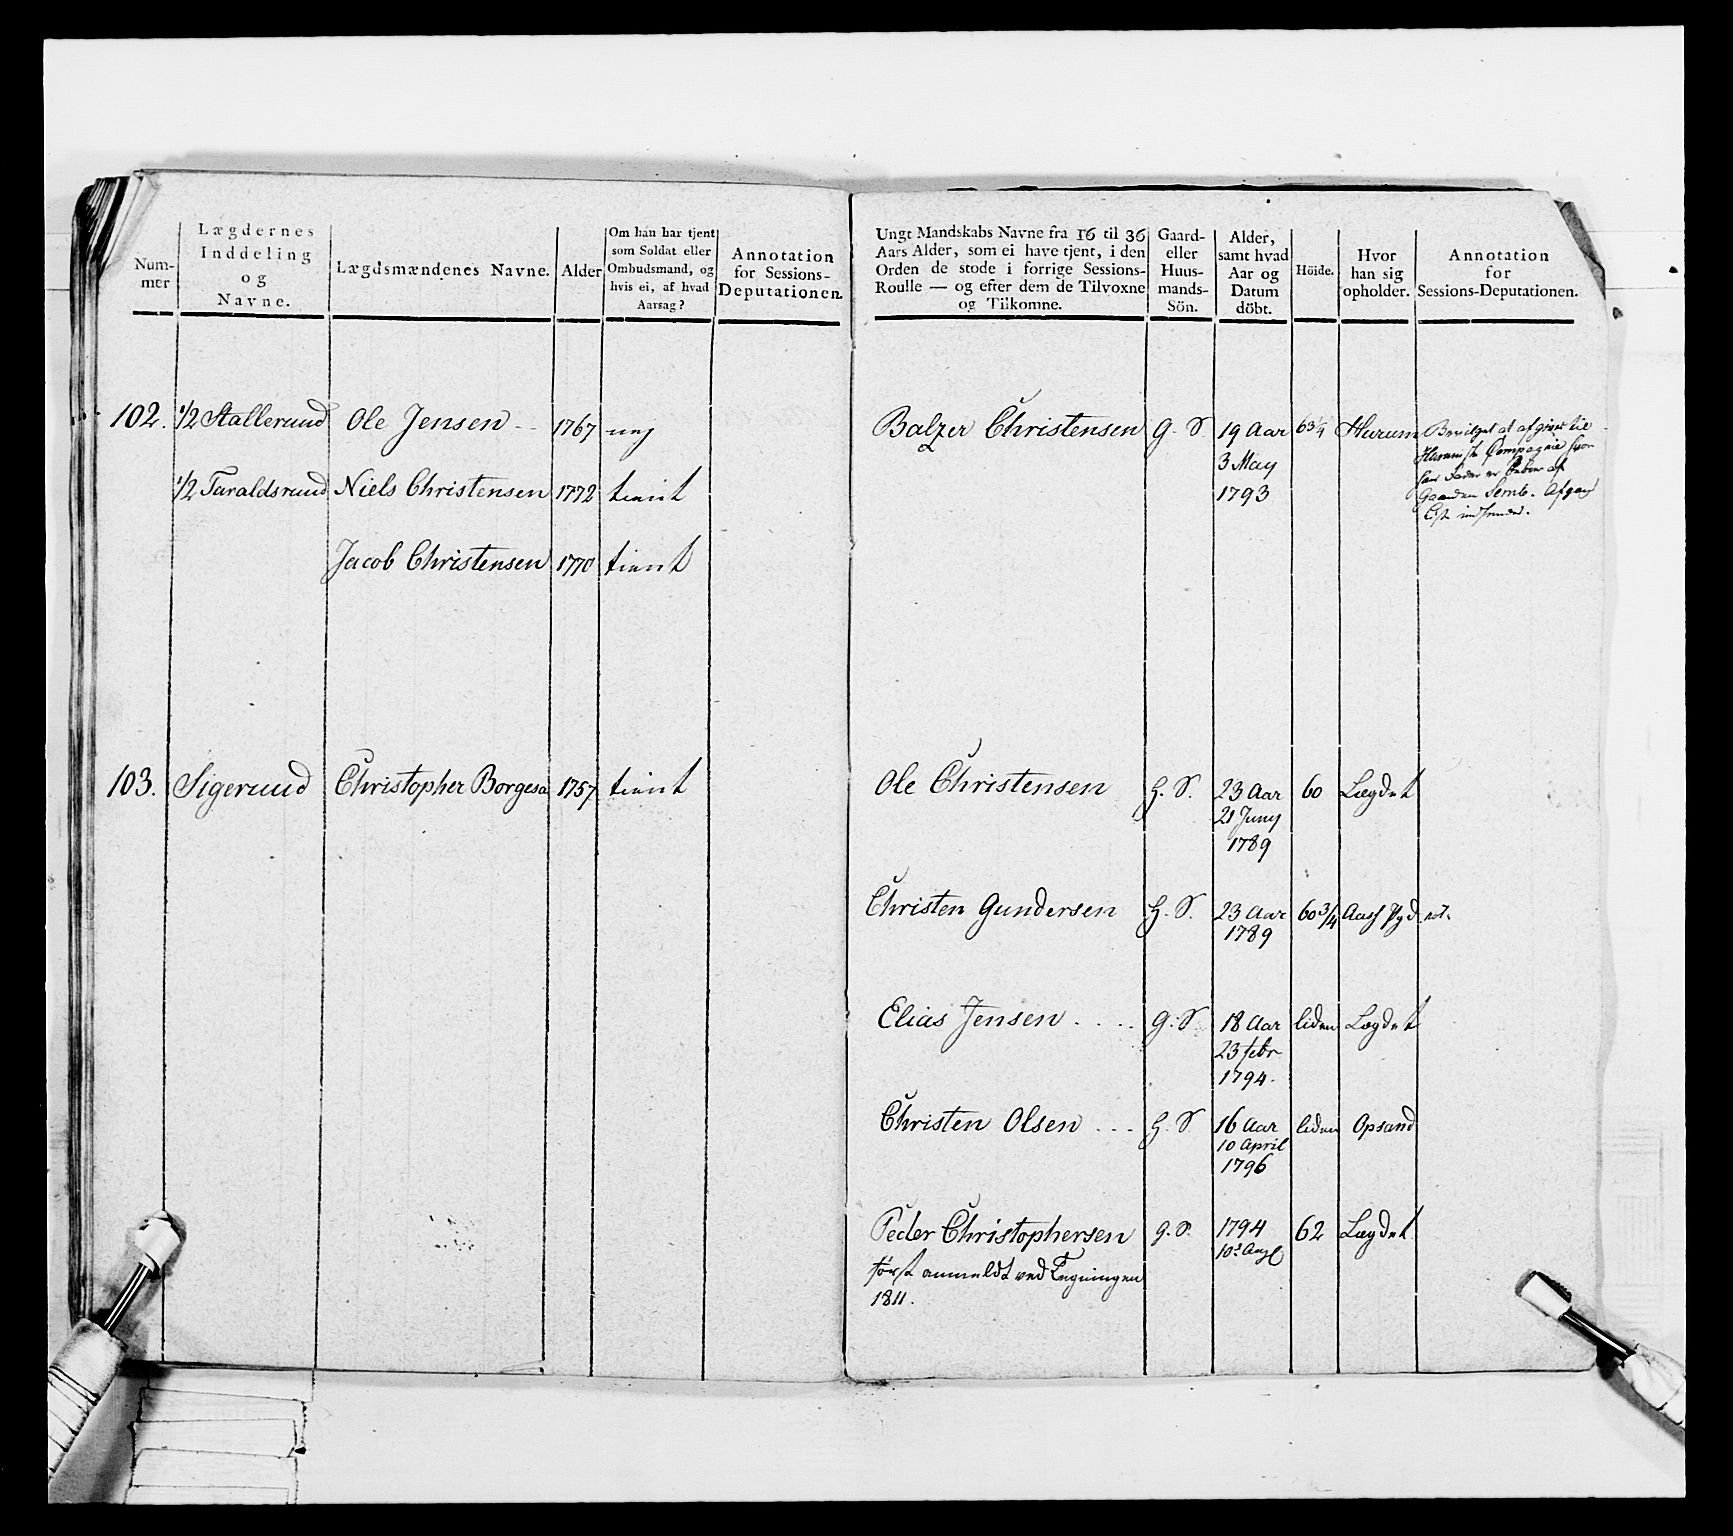 Num-
mer
Lægdernes
Inddeling
og
Navne.
Lægdsmændenes Navne.
Alder
Om han har tjent
som Soldat eller
Ombudsmand, og
hvis ei, af hvad
Aarsag?
Annotation
for Sessions-
Deputationen.
102. 1/2 Stallerund Ole Jensen 1767 ney
1/2 Taraldsrund Niels Christensen 1772 tient
Jacob Christensen 1770 tient
103. Sigerund Christopher Borgesa 1757 tient
Ungt Mandskabs Navne fra 16 til 36
Aars Alder, som ei have tjent, i den
Orden de stode i forrige Sessions-
Roulle — og efter dem de Tilvoxne
og Tilkomne.
Gaard-
eller
Huus-
mands-
Sön.
Alder,
samt hvad
Aar og
Datum
döbt.
Höide.
Hvor
han sig
opholder.
Annotation
for
Sessions-Deputationen.
Balzer Christensen G. S 19 Aar 63 1/4 Hurum
3 May
1793
Bevilget at afgives til
Compagnie hvor
han Fader er af
Gaarden Semb. Afgangs
Liste indsendes.
Ole Christensen H. S. 23 Aar 60 Lægdet
21 Juny
1789
Christen Gundersen H. S. 23 Aar 60 3/4 Aass
1789
Elias Jensen . . . . G. S 18 Aar liden Lægdet
23 febr
1794.
Christen Olsen . . . H. S 16 Aar liden Opsand
10 April
1796
Peder Christophersen g. S. 1794 62 Lægdet
10de Aug
först anmeldt ved Tegningen
1811.